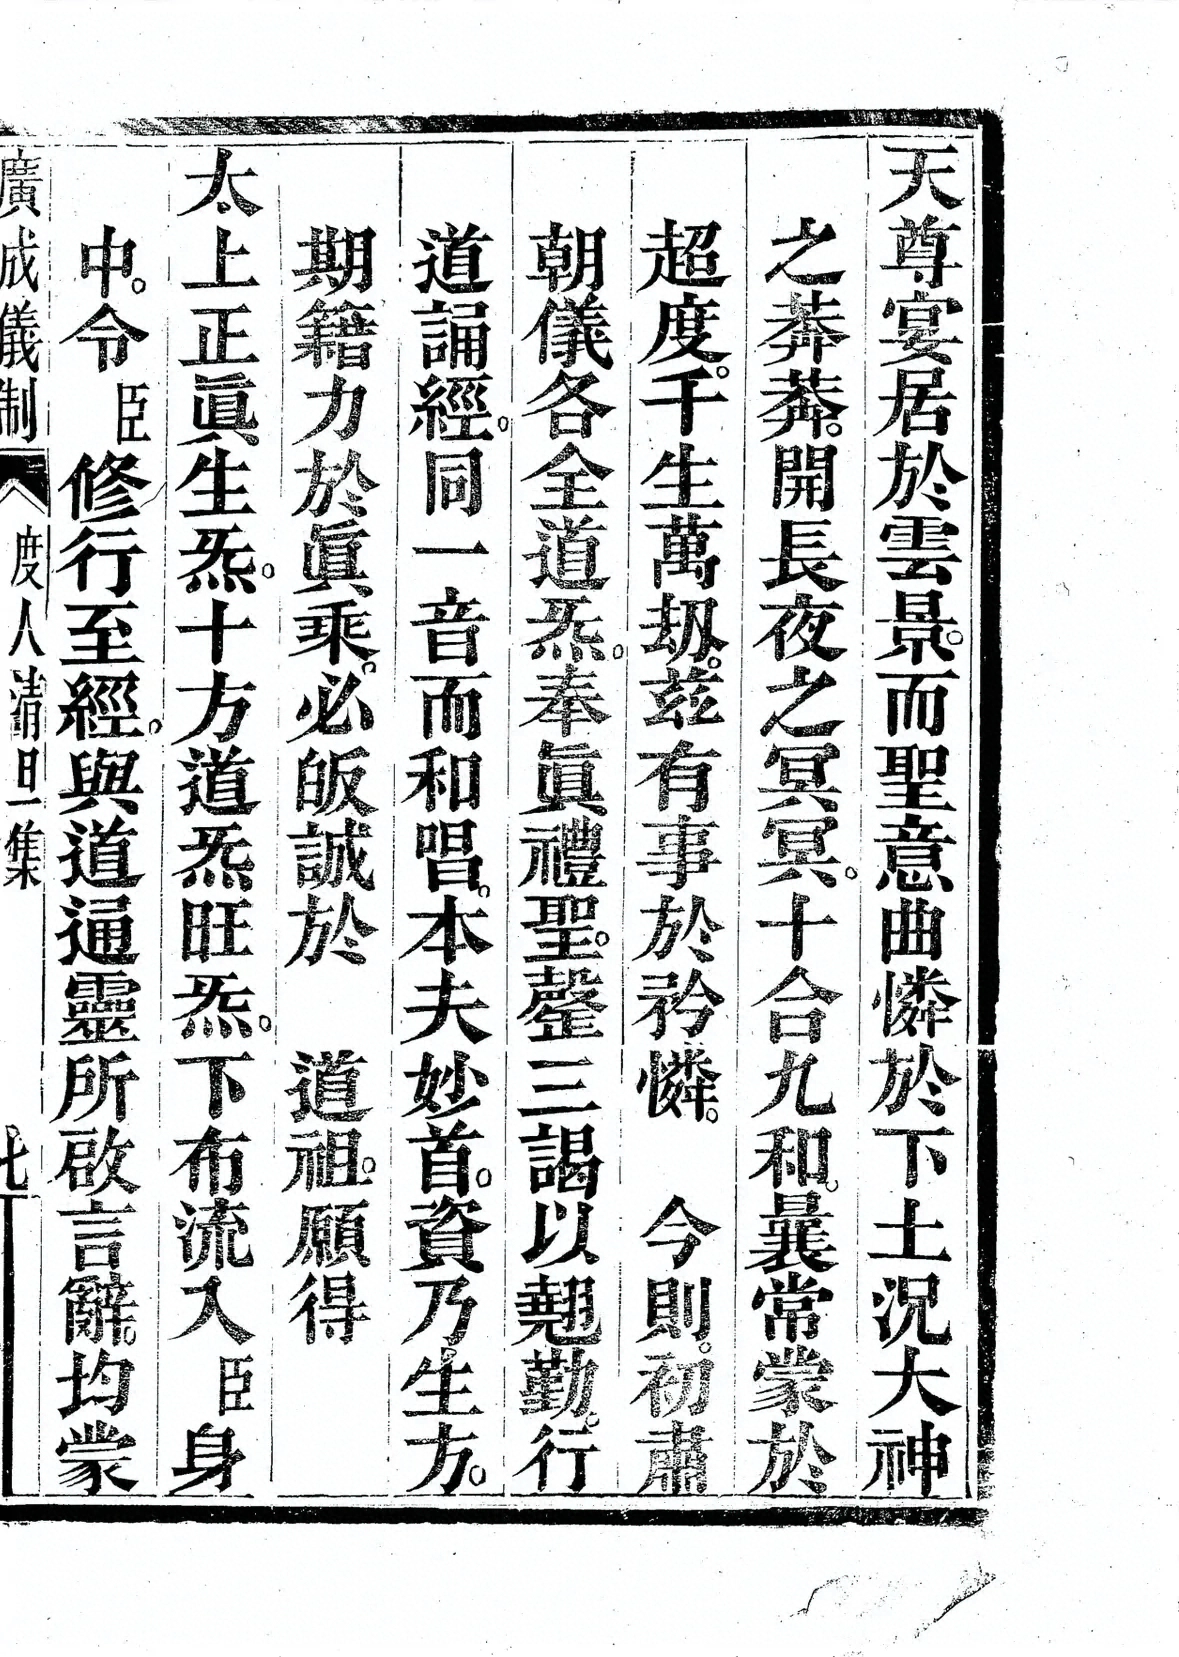 天尊宴居於雲景。而聖意曲憐於下土况大神
之莽莽。開長夜之冥冥。十合九和。曩常蒙於
超度。千生萬劫。茲有事於矜憐。　今則。初肅
朝儀各全道炁。奉眞禮聖。罄三謁以翹勤。行
道誦經。同一音而和唱。本夫妙首。資乃生方。
期籍力於眞乘。必皈誠於　道祖。願得
太。上正眞生炁。十方道炁旺炁。下布流入臣身
中。令臣修行至經。與道通靈所啟言辭。均蒙
廣成儀制　度人清旦集　七